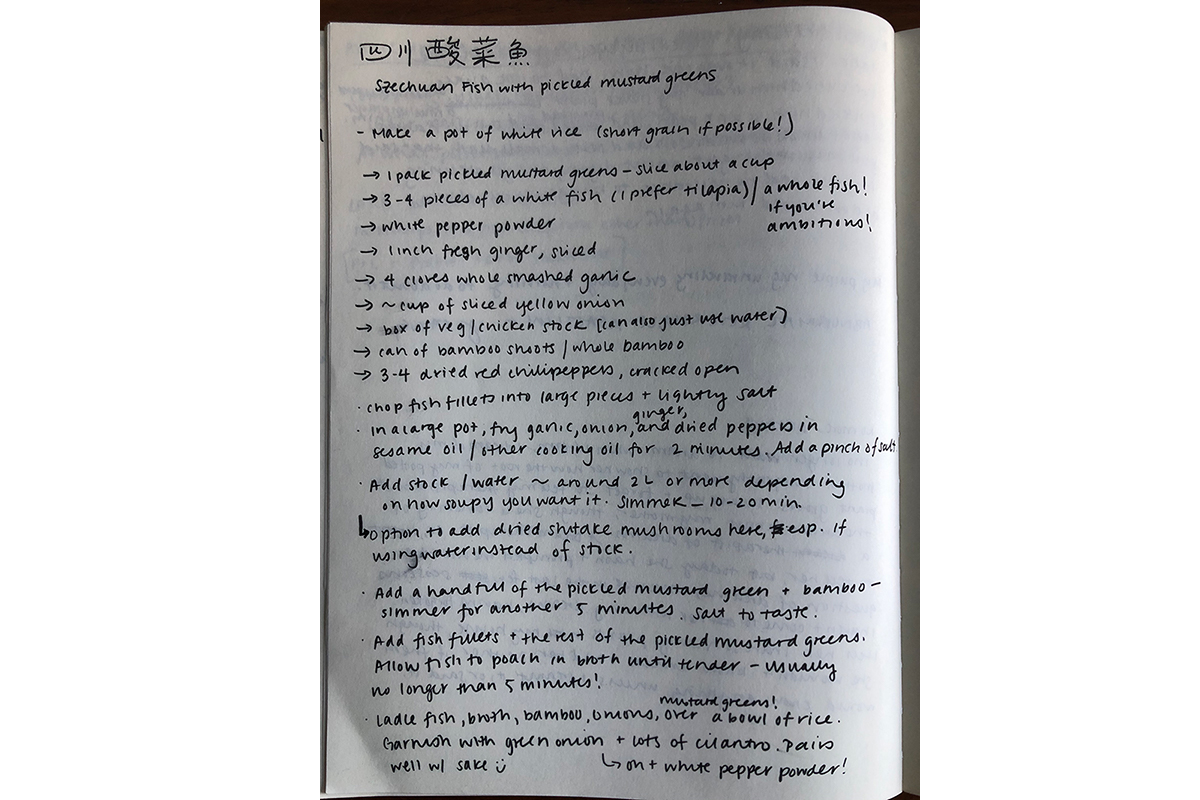 四川 酸菜魚
Szechuan Fish with pickled mustard greens
- Make a pot of white rice (short grain if possible!)
→ 1 pack pickled mustard greens - slice about a cup
→ 3-4 pieces of a white fish (i prefer tilapia) / a whole fish!
if you're
ambitions!
→ white pepper powder
→ 1 inch fresh ginger, sliced
→ 4 cloves whole smashed garlic
→ ~ cup of sliced yellow onion
→ box of veg / chicken stock [can also just use water]
→ can of bamboo shoots / whole bamboo
→ 3-4 dried red chili peppers, cracked open
· chop fish fillets into large pieces + lightly salt
ginger,
· in a large pot, fry garlic, onion, and dried peppers in
sesame oil / other cooking oil for 2 minutes. Add a pinch of salt.
· Add stock / water ~ around 2L or more depending
on how soupy you want it. Simmer - 10-20 min.
↳ option to add dried shitake mushrooms here, esp. if
using water instead of stock.
· Add a handfull of the pickled mustard green + bamboo -
simmer for another 5 minutes. Salt to taste.
· Add fish fillets + the rest of the pickled mustard greens.
Allow fish to poach in broth until tender - usually
no longer than 5 minutes!
mustard greens!
· Ladle fish, broth, bamboo, onions, over a bowl of rice.
Garnish with green onion + lots of cilantro. Pairs
well w/ sake ☺
↳ oh + white pepper powder!